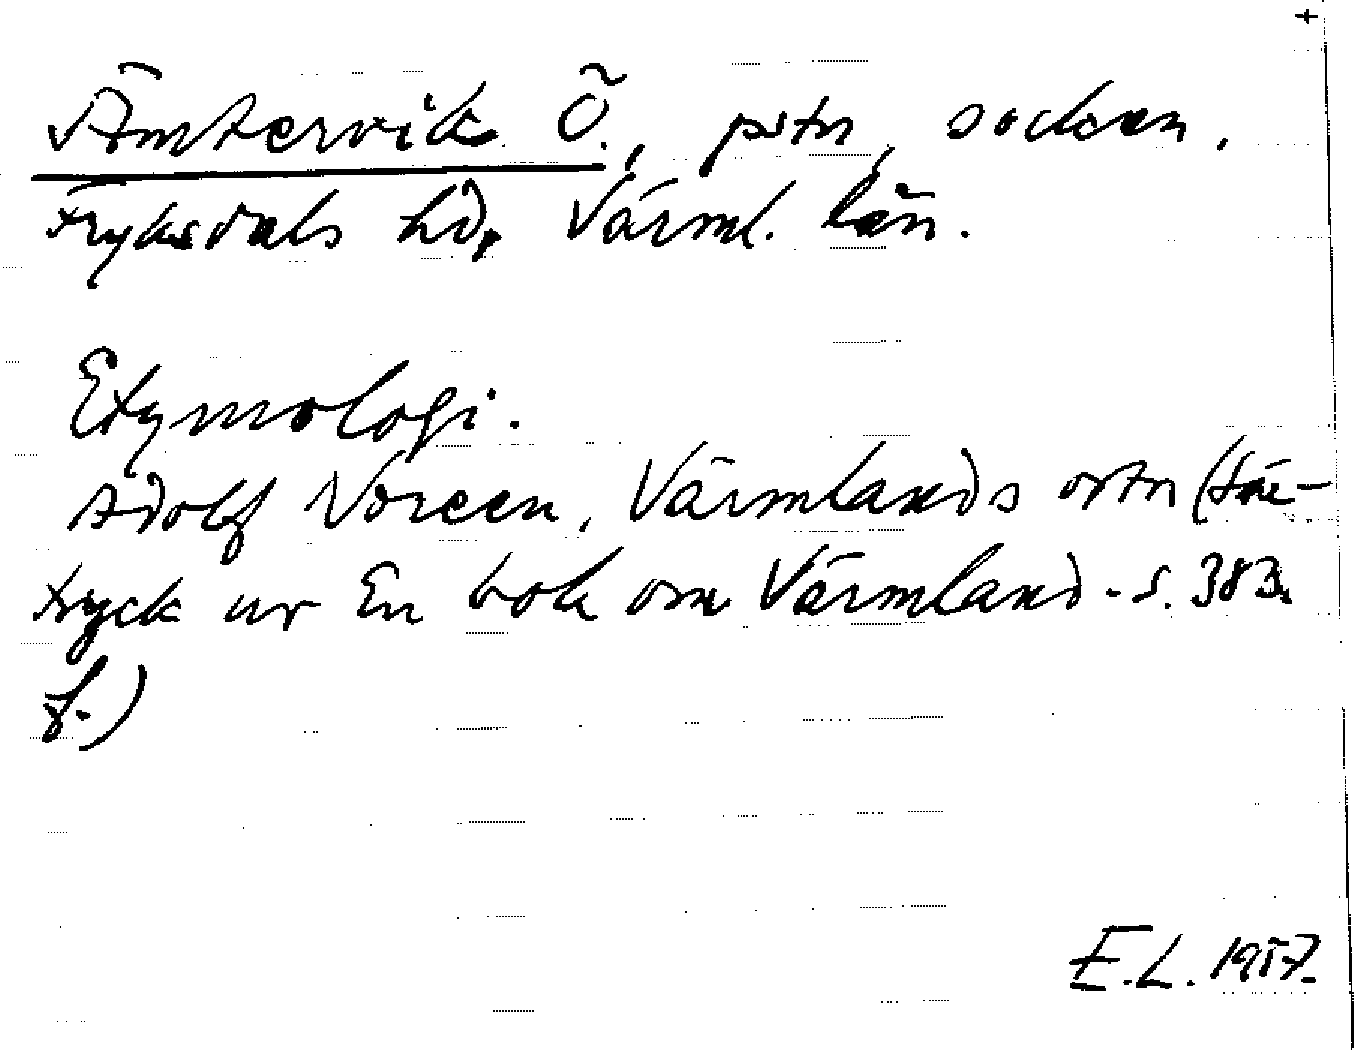 +
Ämtervik Ö., pstn, socken,
Fryksdals hd, Värml. län.
Etymologi.
Adolf Noreen, Värmlands ortn (Sär-
tryck ur En bok om Värmland - s. 383
f.)
E.L. 1957.